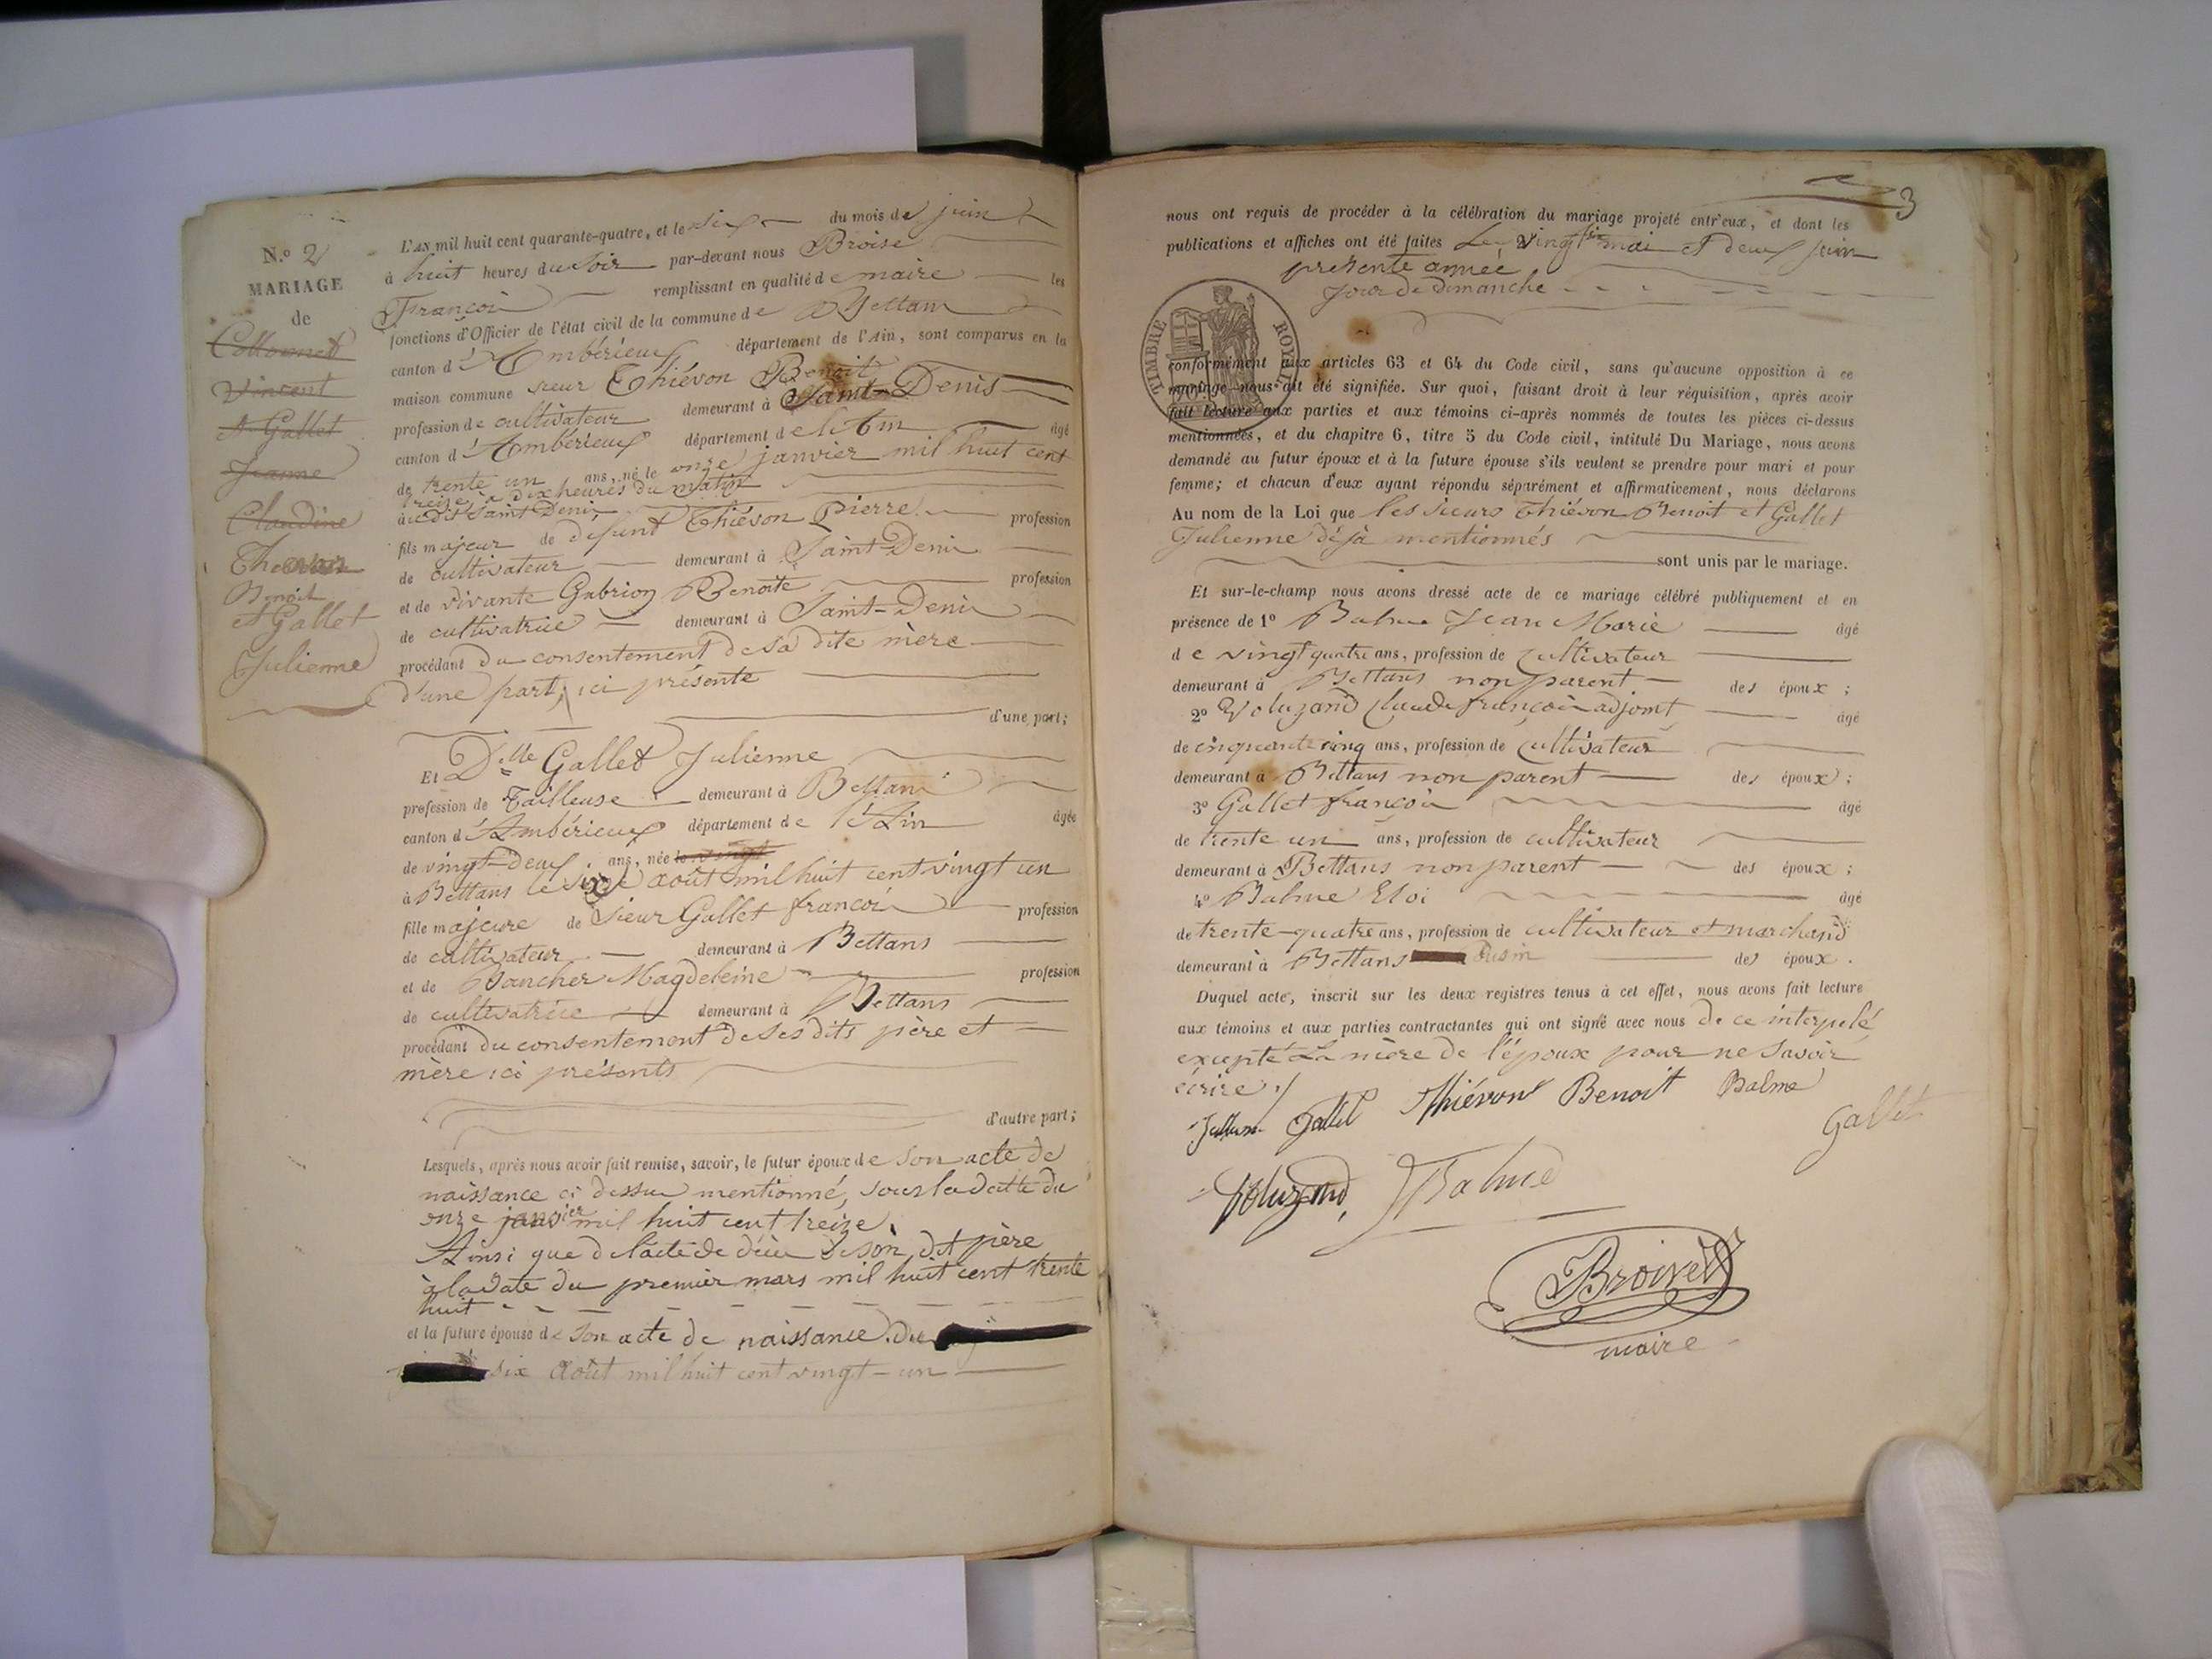 N.º 2
MARIAGE
de
Collonnet
Vincent
et Gallet
Jeanne
Claudine
Thiévon
Benoit
et Gallet
Julienne
L'AN mil huit cent quarante-quatre, et le six du mois de juin
à huit heures du soir par-devant nous Broise
François remplissant en qualité de maire les
fonctions d'Officier de l'état civil de la commune de Bettans
canton d'Ambérieux département de l'Ain, sont comparus en la
maison commune sieur Thiévon Benoit
profession de cultivateur demeurant à Saint-Denis
canton d'Ambérieux département de l'Ain âgé
de trente un ans, né le onze janvier mil huit cent
treize, à dix heures du matin
à udit Saint Denis
fils majeur de défunt Thiévon Pierre profession
de cultivateur demeurant à Saint-Denis
et de vivante Gabrion Benoite profession
de cultivatrice demeurant à Saint-Denis
procédant du consentement de sa dite mère
d'une part, ici présente
d'une part;
Et Delle Gallet Julienne
profession de Tailleuse demeurant à Bettans
canton d'Ambérieux département de l'Ain âgée
de vingt-deux ans, née le vingt
à Bettans le six août mil huit cent vingt un
fille majeure de Sieur Gallet françois profession
de cultivateur demeurant à Bettans
et de Bancher Magdeleine profession
de cultivatrice demeurant à Bettans
procédant du consentement de ses dits père et
mère ici présents
d'autre part;
Lesquels, après nous avoir fait remise, savoir, le futur époux de son acte de
naissance ci dessus mentionné, sous la datte du
onze janvier mil huit cent treize.
Ainsi que de l'acte de décès de son dit père
à la date du premier mars mil huit cent trente
huit
et la future épouse de son acte de naissance du
six août mil huit cent vingt-un
3
nous ont requis de procéder à la célébration du mariage projeté entr'eux, et dont les
publications et affiches ont été faites Les vingt six mai et deux juin
présente année
Jour de Dimanche
TIMBRE ROYAL
conformément aux articles 63 et 64 du Code civil, sans qu'aucune opposition à ce
mariage nous ait été signifiée. Sur quoi, faisant droit à leur réquisition, après avoir
fait lecture aux parties et aux témoins ci-après nommés de toutes les pièces ci-dessus
mentionnées, et du chapitre 6, titre 5 du Code civil, intitulé Du Mariage, nous avons
demandé au futur époux et à la future épouse s'ils veulent se prendre pour mari et pour
femme; et chacun d'eux ayant répondu séparément et affirmativement, nous déclarons
Au nom de la Loi que les sieurs Thiévon Benoit et Gallet
Julienne déjà mentionnés
sont unis par le mariage.
Et sur-le-champ nous avons dressé acte de ce mariage célébré publiquement et en
présence de 1º Balme Jean Marie âgé
de vingt quatre ans, profession de cultivateur
demeurant à Bettans non parent des époux;
2º Voluzand Claude françois adjoint âgé
de cinquante cinq ans, profession de cultivateur
demeurant à Bettans non parent des époux;
3º Gallet françois âgé
de trente un ans, profession de cultivateur
demeurant à Bettans non parent des époux;
4º Balme Eloi âgé
de trente-quatre ans, profession de cultivateur et marchand
demeurant à Bettans cousin des époux.
Duquel acte, inscrit sur les deux registres tenus à cet effet, nous avons fait lecture
aux témoins et aux parties contractantes qui ont signé avec nous de ce interpelé
excepté La mère de l'époux pour ne savoir
écrire ./
Julienne Gallet Thiévon Benoit Balme
Gallet
Voluzand, Balme
Broise
maire